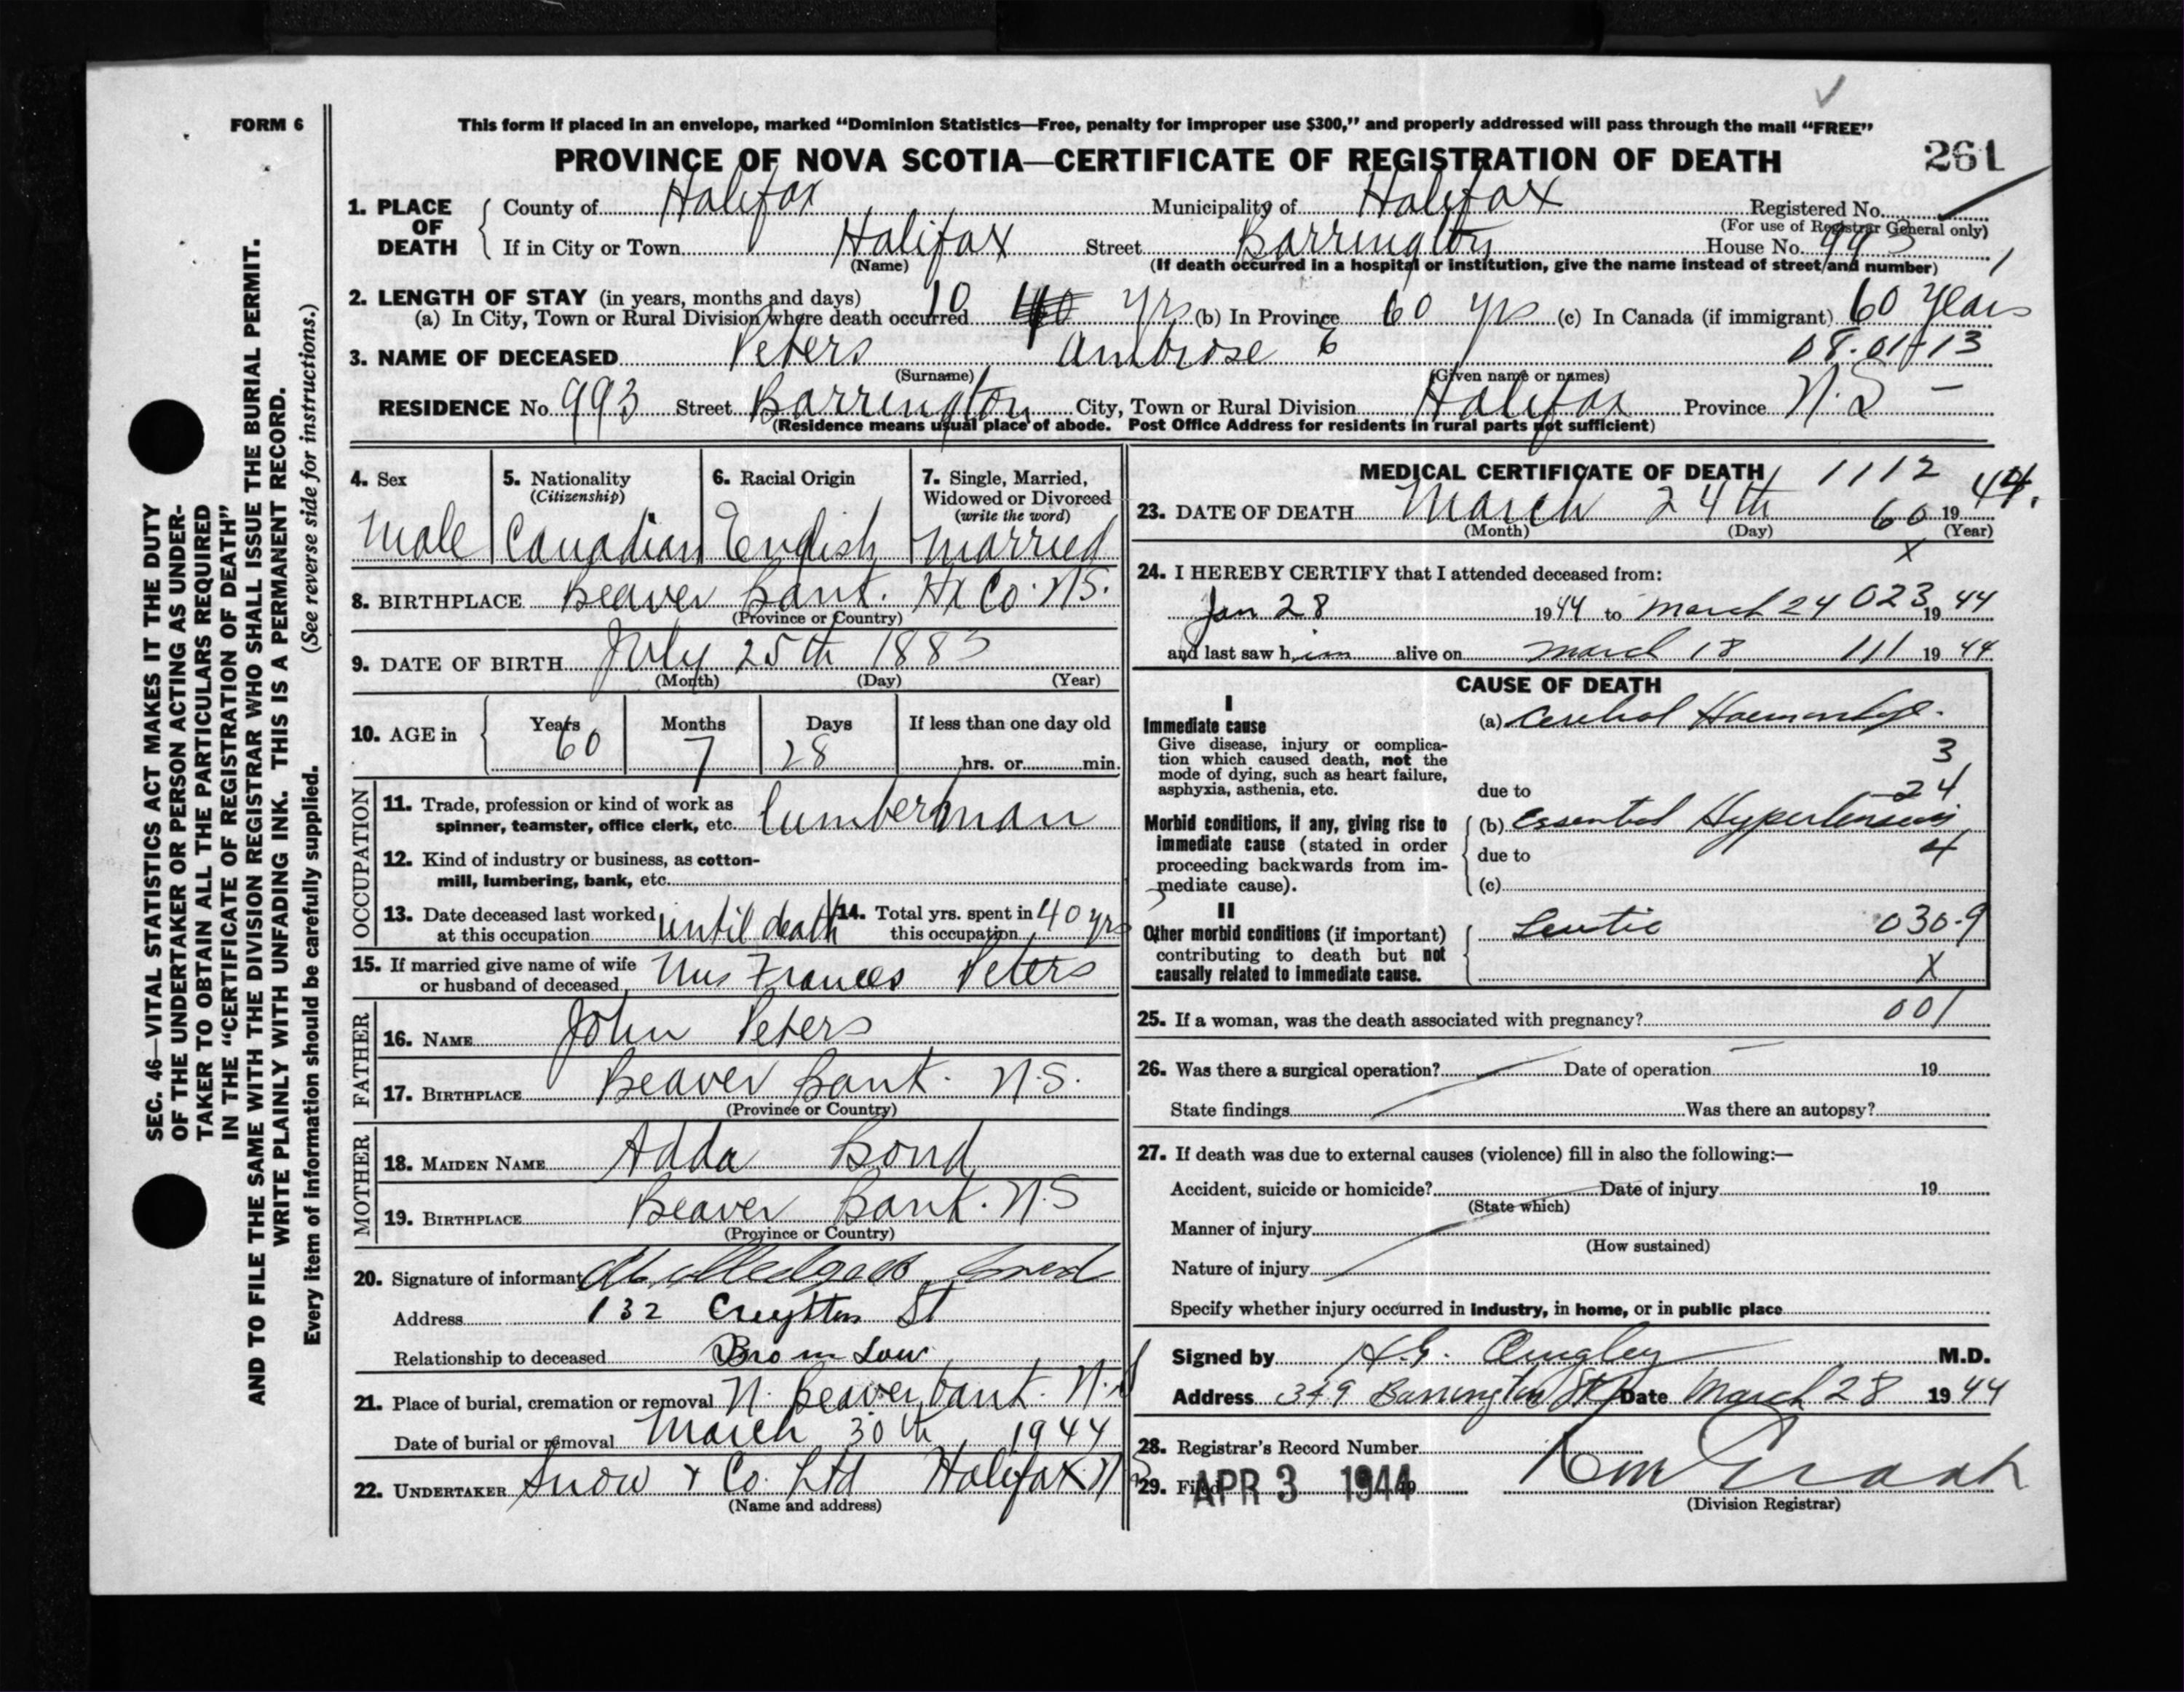 FORM 6
This form if placed in an envelope, marked “Dominion Statistics—Free, penalty for improper use $300,” and properly addressed will pass through the mail “FREE”
PROVINCE OF NOVA SCOTIA—CERTIFICATE OF REGISTRATION OF DEATH
261
1. PLACE OF DEATH
County of Halifax Municipality of Halifax Registered No.
(For use of Registrar General only)
If in City or Town Halifax Street Barrington House No. 993
(Name) (If death occurred in a hospital or institution, give the name instead of street and number)
2. LENGTH OF STAY (in years, months and days)
(a) In City, Town or Rural Division where death occurred 10 yrs (b) In Province 60 yrs (c) In Canada (if immigrant) 60 years
3. NAME OF DECEASED Peters Ambrose E 08-01-13
(Surname) (Given name or names)
RESIDENCE No. 993 Street Barrington City, Town or Rural Division Halifax Province N.S
(Residence means usual place of abode. Post Office Address for residents in rural parts not sufficient)
4. Sex
Male
5. Nationality
(Citizenship)
Canadian
6. Racial Origin
English
7. Single, Married,
Widowed or Divorced
(write the word)
Married
8. BIRTHPLACE Beaver Bank. Hx Co. N.S.
(Province or Country)
9. DATE OF BIRTH July 25th 1883
(Month) (Day) (Year)
10. AGE in
Years Months Days If less than one day old
60 7 28 hrs. or min.
OCCUPATION
11. Trade, profession or kind of work as
spinner, teamster, office clerk, etc. lumberman
12. Kind of industry or business, as cotton-
mill, lumbering, bank, etc.
13. Date deceased last worked
at this occupation until death
14. Total yrs. spent in
this occupation 40 yrs
15. If married give name of wife
or husband of deceased Mrs Frances Peters
FATHER
16. NAME John Peters
17. BIRTHPLACE Beaver Bank. N.S.
(Province or Country)
MOTHER
18. MAIDEN NAME Adda Bond
19. BIRTHPLACE Beaver Bank. N.S
(Province or Country)
20. Signature of informant
Address 132 Creighton St
Relationship to deceased Bro in Law
21. Place of burial, cremation or removal N. Beaver bank. N.S
Date of burial or removal March 30th 1944
22. UNDERTAKER Snow & Co. Ltd Halifax N S
(Name and address)
MEDICAL CERTIFICATE OF DEATH 1112
23. DATE OF DEATH March 24th 60 19 44.
(Month) (Day) (Year)
X
24. I HEREBY CERTIFY that I attended deceased from:
Jan 28 1944 to March 24 023 19 44
and last saw him alive on March 18 111 19 44
CAUSE OF DEATH
I
Immediate cause
Give disease, injury or complica-
tion which caused death, not the
mode of dying, such as heart failure,
asphyxia, asthenia, etc.
(a) Cerebral Haemorrhage.
3
due to
24
Morbid conditions, if any, giving rise to
immediate cause (stated in order
proceeding backwards from im-
mediate cause).
(b) Essential Hypertension
due to 4
(c)
II
Other morbid conditions (if important)
contributing to death but not
causally related to immediate cause.
030-9
X
25. If a woman, was the death associated with pregnancy? 001
26. Was there a surgical operation? Date of operation 19
State findings Was there an autopsy?
27. If death was due to external causes (violence) fill in also the following:—
Accident, suicide or homicide? Date of injury 19
(State which)
Manner of injury
(How sustained)
Nature of injury
Specify whether injury occurred in industry, in home, or in public place
Signed by M.D.
Address 349 Barrington St. Date March 28 1944
28. Registrar's Record Number
29. Filed APR 3 1944
(Division Registrar)
SEC. 46—VITAL STATISTICS ACT MAKES IT THE DUTY
OF THE UNDERTAKER OR PERSON ACTING AS UNDER-
TAKER TO OBTAIN ALL THE PARTICULARS REQUIRED
IN THE “CERTIFICATE OF REGISTRATION OF DEATH”
AND TO FILE THE SAME WITH THE DIVISION REGISTRAR WHO SHALL ISSUE THE BURIAL PERMIT.
WRITE PLAINLY WITH UNFADING INK. THIS IS A PERMANENT RECORD.
Every item of information should be carefully supplied. (See reverse side for instructions.)